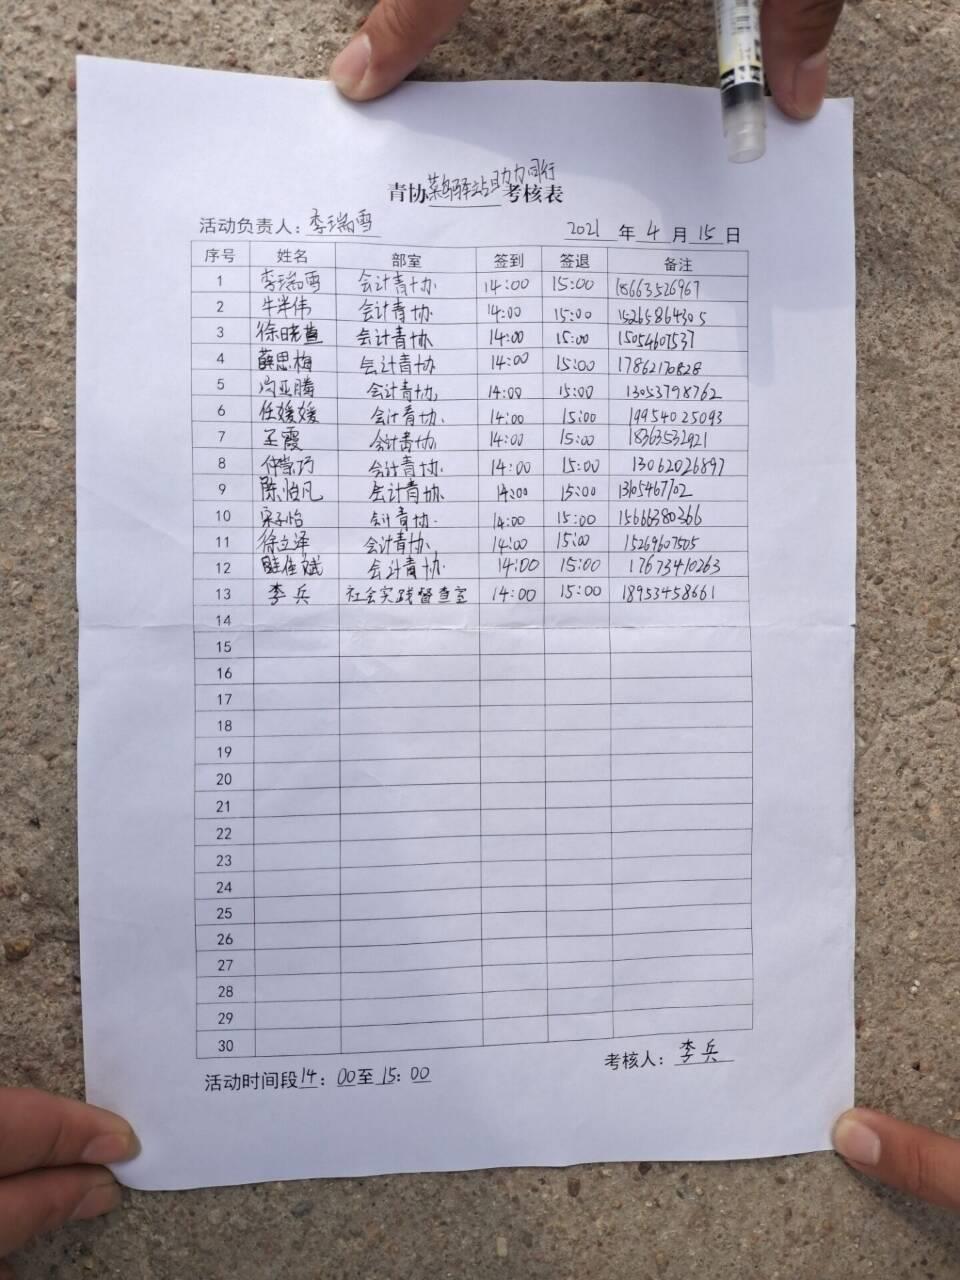 青协菜鸟驿站助力同行考核表
活动负责人：李瑞雪 2021年4月15日
序号 姓名 部室 签到 签退 备注
1 李瑞雪 会计青协 14:00 15:00 18663526967
2 牛半伟 会计青协 14:00 15:00 15265864305
3 徐晓萱 会计青协 14:00 15:00 15054607537
4 薛思梅 会计青协 14:00 15:00 17862170828
5 闫亚腾 会计青协 14:00 15:00 13053798762
6 任媛媛 会计青协 14:00 15:00 19954025093
7 孟霞 会计青协 14:00 15:00 18363532921
8 仲崇巧 会计青协 14:00 15:00 13062026897
9 陈怡凡 会计青协 14:00 15:00 13105467702
10 宋子怡 会计青协 14:00 15:00 15666380366
11 徐立泽 会计青协 14:00 15:00 15269607505
12 佳斌 会计青协 14:00 15:00 17673410263
13 李兵 社会实践督查室 14:00 15:00 18953458661
14
15
16
17
18
19
20
21
22
23
24
25
26
27
28
29
30
考核人：李兵
活动时间段14：00至15：00